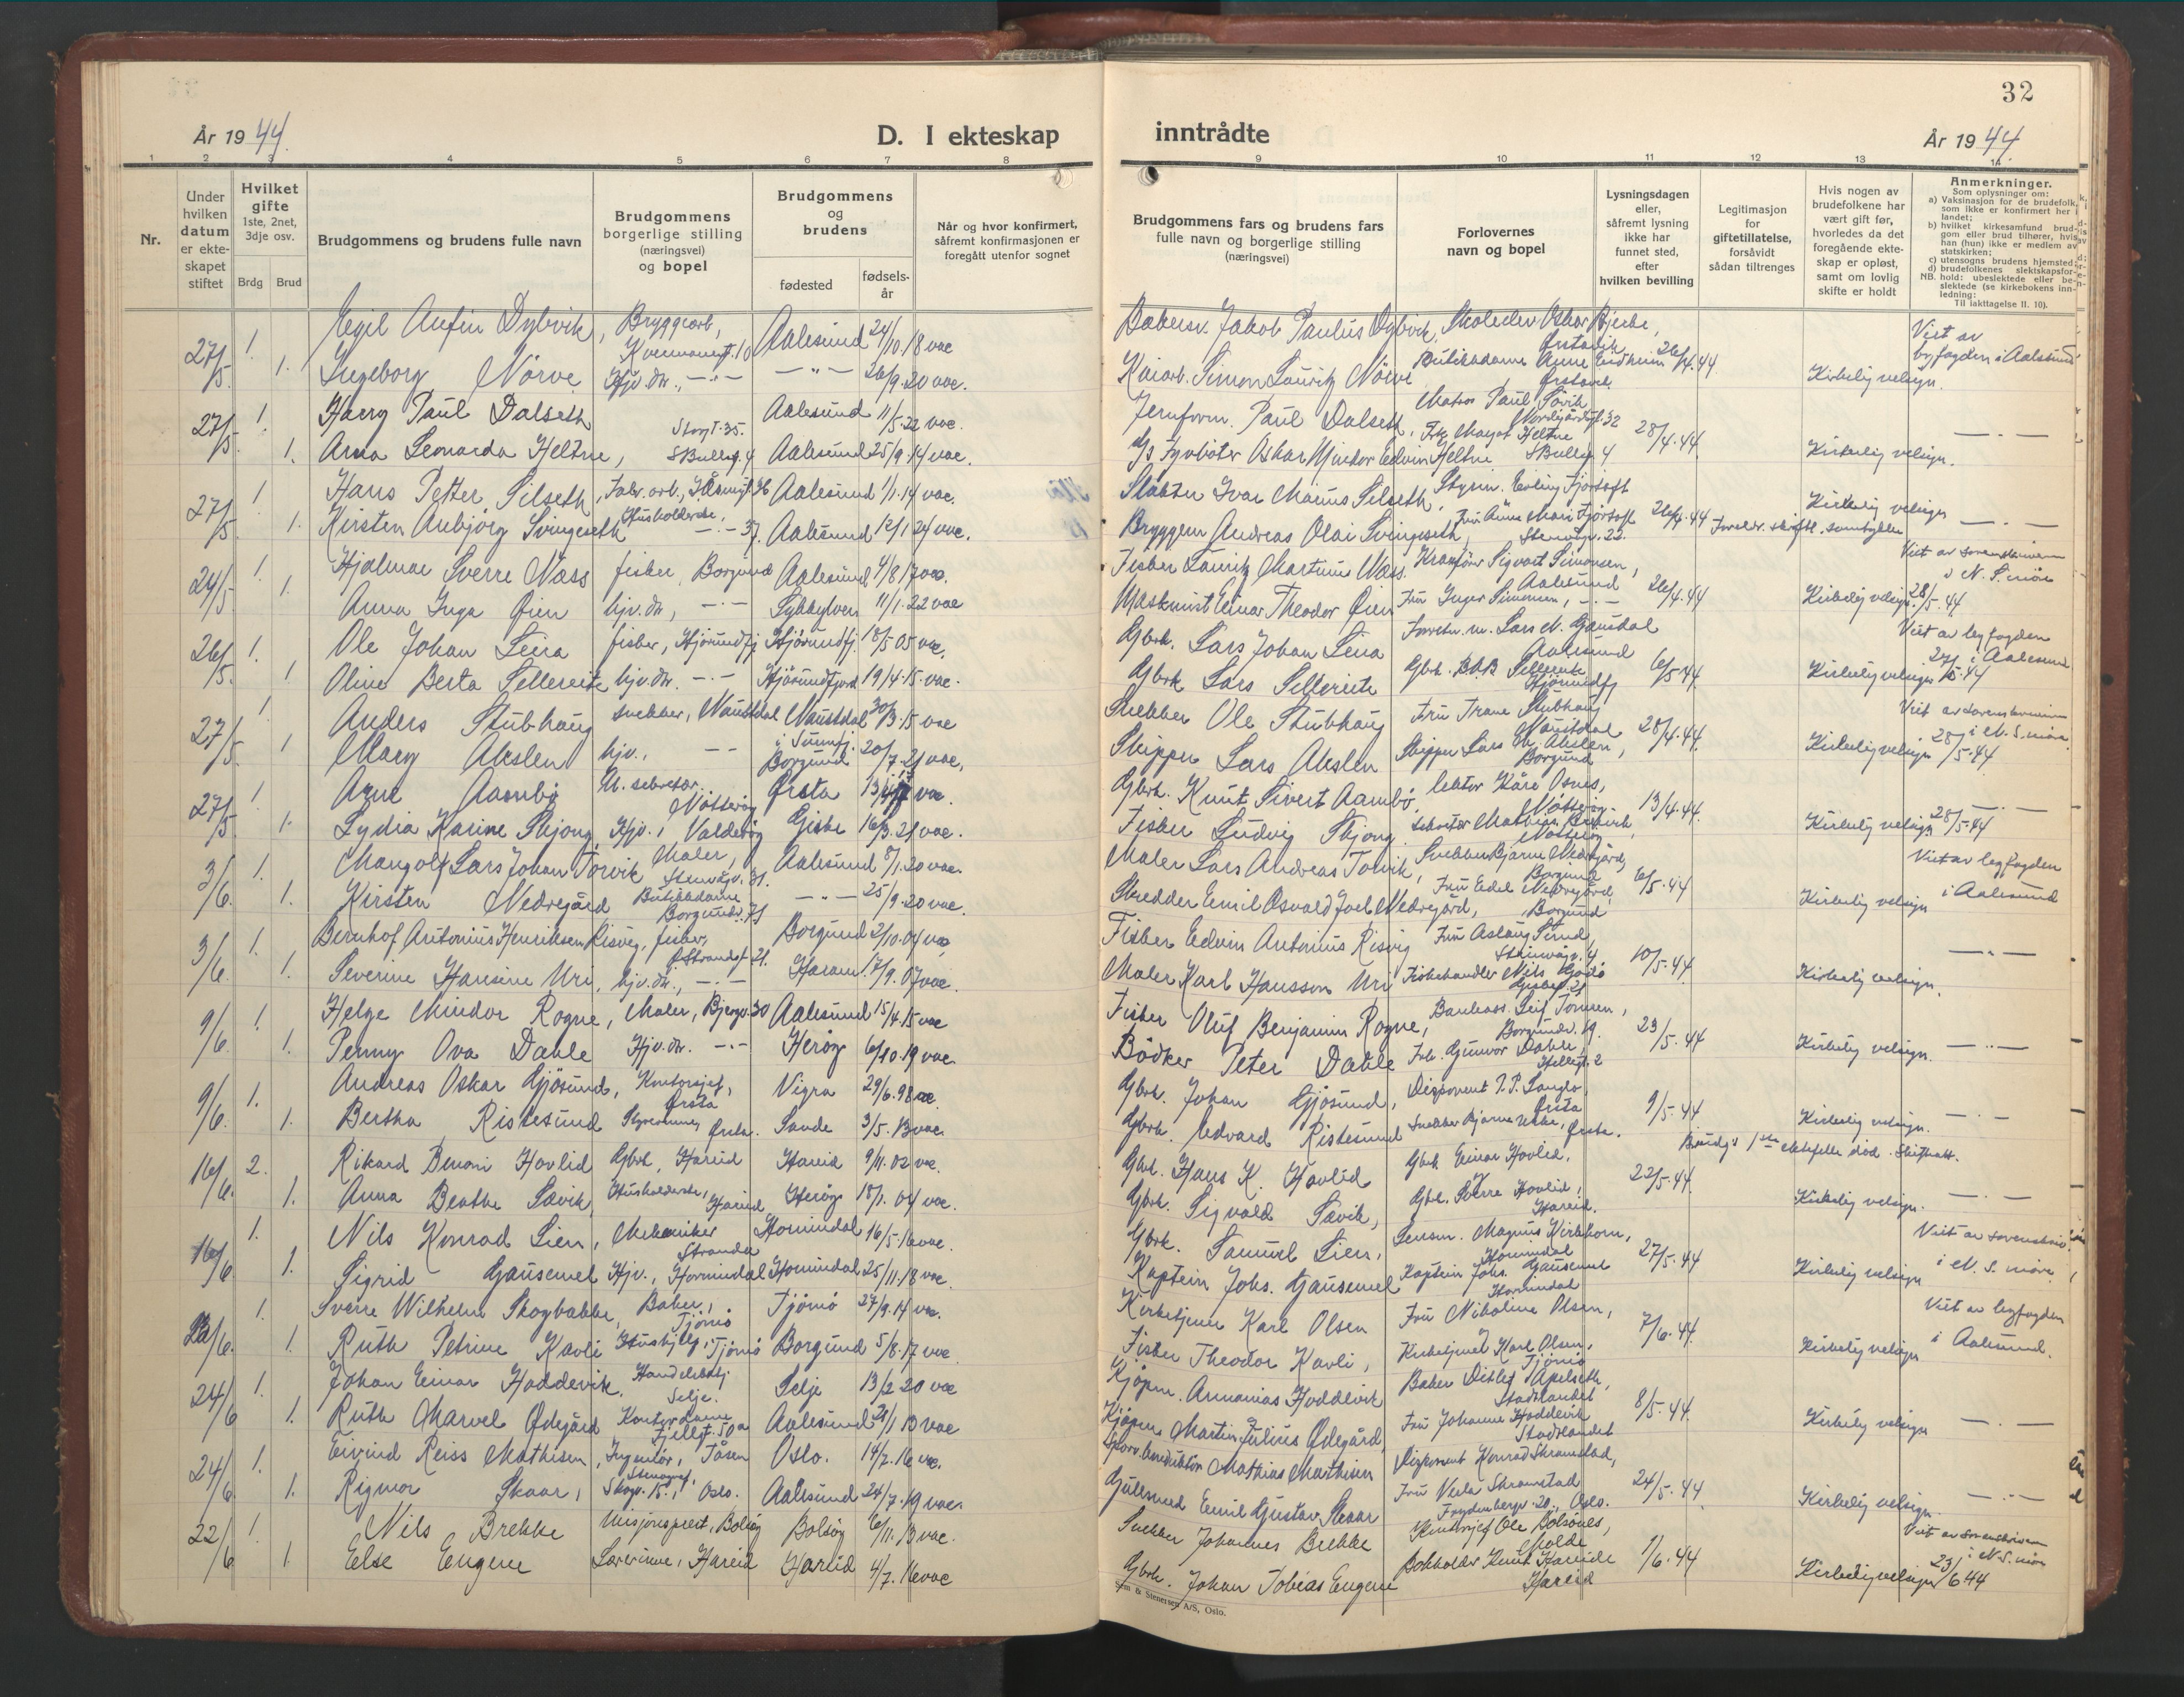 32
År 1944.
D. I ekteskap
inntrådte
År 1944
1 2 3 4 5 6 7 8
9 10 11 12 13 14
Nr.
Under hvilken datum er ekteskapet stiftet
Hvilket gifte
1ste, 2net, 3dje osv.
Brdg Brud
Brudgommens og brudens fulle navn
Brudgommens borgerlige stilling (næringsvei) og bopel
Brudgommens og brudens
fødested
fødselsår
Når og hvor konfirmert, såfremt konfirmasjonen er foregått utenfor sognet
Brudgommens fars og brudens fars fulle navn og borgerlige stilling (næringsvei)
Forlovernes navn og bopel
Lysningsdagen eller, såfremt lysning ikke har funnet sted, efter hvilken bevilling
Legitimasjon for giftetillatelse, forsåvidt sådan tiltrenges
Hvis nogen av brudefolkene har vært gift før, hvorledes da det foregående ekteskap er opløst, samt om lovlig skifte er holdt
Anmerkninger.
Som oplysninger om:
a) Vaksinasjon for de brudefolk, som ikke er konfirmert her i landet;
b) hvilket kirkesamfund brudgom eller brud tilhører, hvis han (hun) ikke er medlem av statskirken;
c) utensogns brudens hjemsted;
d) brudefolkenes slektskapsforhold: ubeslektede eller beslektede (se kirkebokens innledning:
NB. Til iakttagelse II. 10).
27/5. 1. Egil Anfin Dybvik, Bryggearb, Aalesund 24/10.18 vac Bakersv. Jakob Paulus Dybvik, Skoleelev Oskar Bjerke, Ørstavik Viet av byfogden i Aalesund
1. Ingeborg Nörve Hjv. dtr., —"— —"— 26/9.20 vac. Kaiarb. Simon Lauritz Nörve 26/4.44 Kirkelig velsign.
27/5. 1. Harry Paul Dalseth Storgt. 35. Aalesund 11/5.22 vac. Jernforn. Paul Dalseth, Matros Paul Sövik
1. Anna Leonarda Heltne, SBullsg. 4 Aalesund 25/9.14 vac. Oskar Mindor Edvin Heltne Frk. Margot Heltne SBullsg 4 28/4.44. Kirkelig velsign. —.—
27/5. 1. Hans Petter Silseth, Fabr. arb., Aalesund 1/1.14 vac. Slakter Ivar Marius Silseth, Styrm. Erling Fjörtoft Kirkelig velsign
1. Kirsten Anbjörg Svingeseth Husholderske, —.— 37. Aalesund 12/1 24 vac. Bryggem Andreas Olai Svingeseth, Fru Anne Marie Fjörtoft Stenvågv. 22. 26/4.44 Foreldr. skriftl. samtykke —.—
24/5. 1. Hjalmar Sverre Næss fisker, Borgund Aalesund 4/8 17 vac. Fisker Lauritz Martinus Næss. Kranförer Sigvart Simonsen, Aalesund Viet av sorenskriveren i N. S.möre
1. Anna Inga Öien hjv. dtr, —.— Sykkylven 11/1.22 vac Maskinist Einar Theodor Öien Fru Inger Simonsen, —.— 26/4.44 Kirkelig velsign 28/5.44
26/5. 1. Ole Johan Leira fisker, Hjörundfj Hjörundfj. 18/5 05 vac. Gbrk. Lars Johan Leira Forretn. m. Lars N. Gausdal Aalesund Viet av byfogden i Aalesund
1 Oline Berta Sellereite hjv. dtr. —.— Hjörundfjord 19/4.15 vac. Gbrk Lars Sellereite Gbrk. Sellereite Hjörundfj 6/5.44. Kirkelig velsign
27/5. 1. Anders Stubhaug snekker, Naustdal Naustdal i Sunnfj. 30/3.15 vac Snekker Ole Stubhaug Fru Stubhaug Naustdal Viet av sorenskriveren i N. S.möre
1 Mary Akslen hjv., —— Borgund 20/7.21 vac. Skipper Lars Akslen Skipper Lars Akslen, Borgund 28/4.44. Kirkelig velsign 28/5.44
27/5. 1. Arne Aambö sekretær Nötteröy Örsta 13 vac. Gbrk. Knut Sivert Aambö, lektor Kåre Osnes, Nötteröy —.—
1. Lydia Karine Skjong Hjv., Valderöy Giske 16/3.21 vac. Fisker Ludvig Skjong. Nötteröy 13/4.44. Kirkelig velsign 28/5.44
3/6. 1. Mangolf Lars Johan Torvik Maler, Stenvågv. 31. Aalesund 8/1.20 vac. Maler Lars Andreas Torvik, Snekker Bjarne Nedregård, Borgund Viet av byfogden i Aalesund
1. Kirsten Nedregård Butikkdame Borgundv. 71 —"— 25/9.20 vac. Skredder Emil Osvald Joel Nedregård, Fru Edel Nedregård, Borgund 6/5.44 Kirkelig velsign
3/6. 1. Bernhof Antonius Henriksen Risvig, fisker, Borgund 2/10.04 vac Fisker Edvin Antonius Risvig Fru Aslaug Strid
1. Severine Hansine Uri, hjv. dtr., —.— Haram 17/9.07 vac. Maler Karl Hansson Uri Fiskehandler Nils Godö 10/5.44 Kirkelig velsign. —"—
9/6. 1. Helge Mindor Rogne, Maler, Bjergv. 30 Aalesund 15/4.15 vac Fisker Oluf Benjamin Rogne, Bankass. Leif Tonnen, Borgundv. 19.
1. Penny Ova Dahle Hjv. dtr. —.— Heröy 6/10.19 vac. Bödker Peter Dahle Frk. Gunvor Dahle, 23/5.44 Kirkelig velsign. —"—
9/6. 1. Andreas Oskar Gjösund, Kontorsjef, Örsta Vigra 29/6.98 vac. Gbrk. Johan Gjösund, Disponent P. P. Langlo, Örsta
1. Bertha Ristesund Örsta. Sande 3/5.13 vac. Gbrk. Edvard Ristesund Snekker Bjarne Örsta. 9/5.44 Kirkelig velsign. —.—
16/6. 2. Rikard Benoni Hovlid Gbrk, Hareid Hareid 9/11.02 vac. Gbrk. Hans K. Hovlid Gbrk Einar Hovlid, Brudg.s 1ste ektefelle död. Skifteatt.
1. Anna Beathe Sævik, Husholderske, Hareid Heröy 18/1.04 vac. Gbrk. Sigvald Sævik, Gbrk. Sverre Hovlid, Hareid. 22/5.44. Kirkelig velsign. —.—
16/6 1. Nils Konrad Lien, Mekaniker Stranda Hornindal 16/5.16 vac. Gbrk. Samuel Lien, Lensm. Magnus Kirkhorn, Hornindal Viet av sorenskriv. i N. S. möre
1. Sigrid Gausemel Hjv., Hornindal Hornindal 25/11.18 vac. Kaptein Johs. Gausemel Kaptein Johs. Gausemel Hornindal 27/5.44 Kirkelig velsign
22/6. 1. Sverre Wilhelm Skogbakke, Baker, Tjömö Tjömö 27/9.14 vac. Kirketjener Karl Olsen Fru Nikoline Olsen, Viet av byfogden i Aalesund.
1. Ruth Petrine Kavli Hushjelp, Tjömö Borgund 5/8.17 vac Fisker Theodor Kavli, Kirketjener Karl Olsen, Tjömö 7/6.44 Kirkelig velsign
24/6 1. Johan Einar Hoddevik. Selje. Selje 13/2 20 vac Kjöpm. Annanias Hoddevik Baker Ditlef Apelseth, Stadtlandet
1. Ruth Marvel Ödegård Kontordame Fjellgt. 50a Aalesund 21/1 13 vac Kjöpm. Martin Julius Ödegård, Fru Johanne Hoddevik Stadtlandet 8/5.44. Kirkelig velsign —.—
24/6 1. Eivind Reiss Mathisen, Ingeniör, Tåsen Oslo. 14/2.16 vac. Mathias Mathisen Disponent Konrad Skramstad,
1. Rigmor Skaar, Oslo. Aalesund 24/7.19 vac. Gullsmed Emil Gustav Skaar Fru Vesla Skramstad Frydenbergv. 20., Oslo. 24/5.44 Kirkelig velsign. —"—
22/6 1. Nils Brekke Misjonsprest, Bolsöy Bolsöy 6/11.13 vac. Snekker Johannes Brekke Kontorsjef Ole Bolsönes, Molde Viet av sorenskriveren i N. S.möre
1. Else Eugene Lærerinne, Hareid Hareid 4/7.16 vac Gbrk. Johan Tobias Eugene Bokholder Knut Hareide Hareid 1/6.44 Kirkelig velsign 23/6 44
Sem & Stenersen A/S, Oslo.